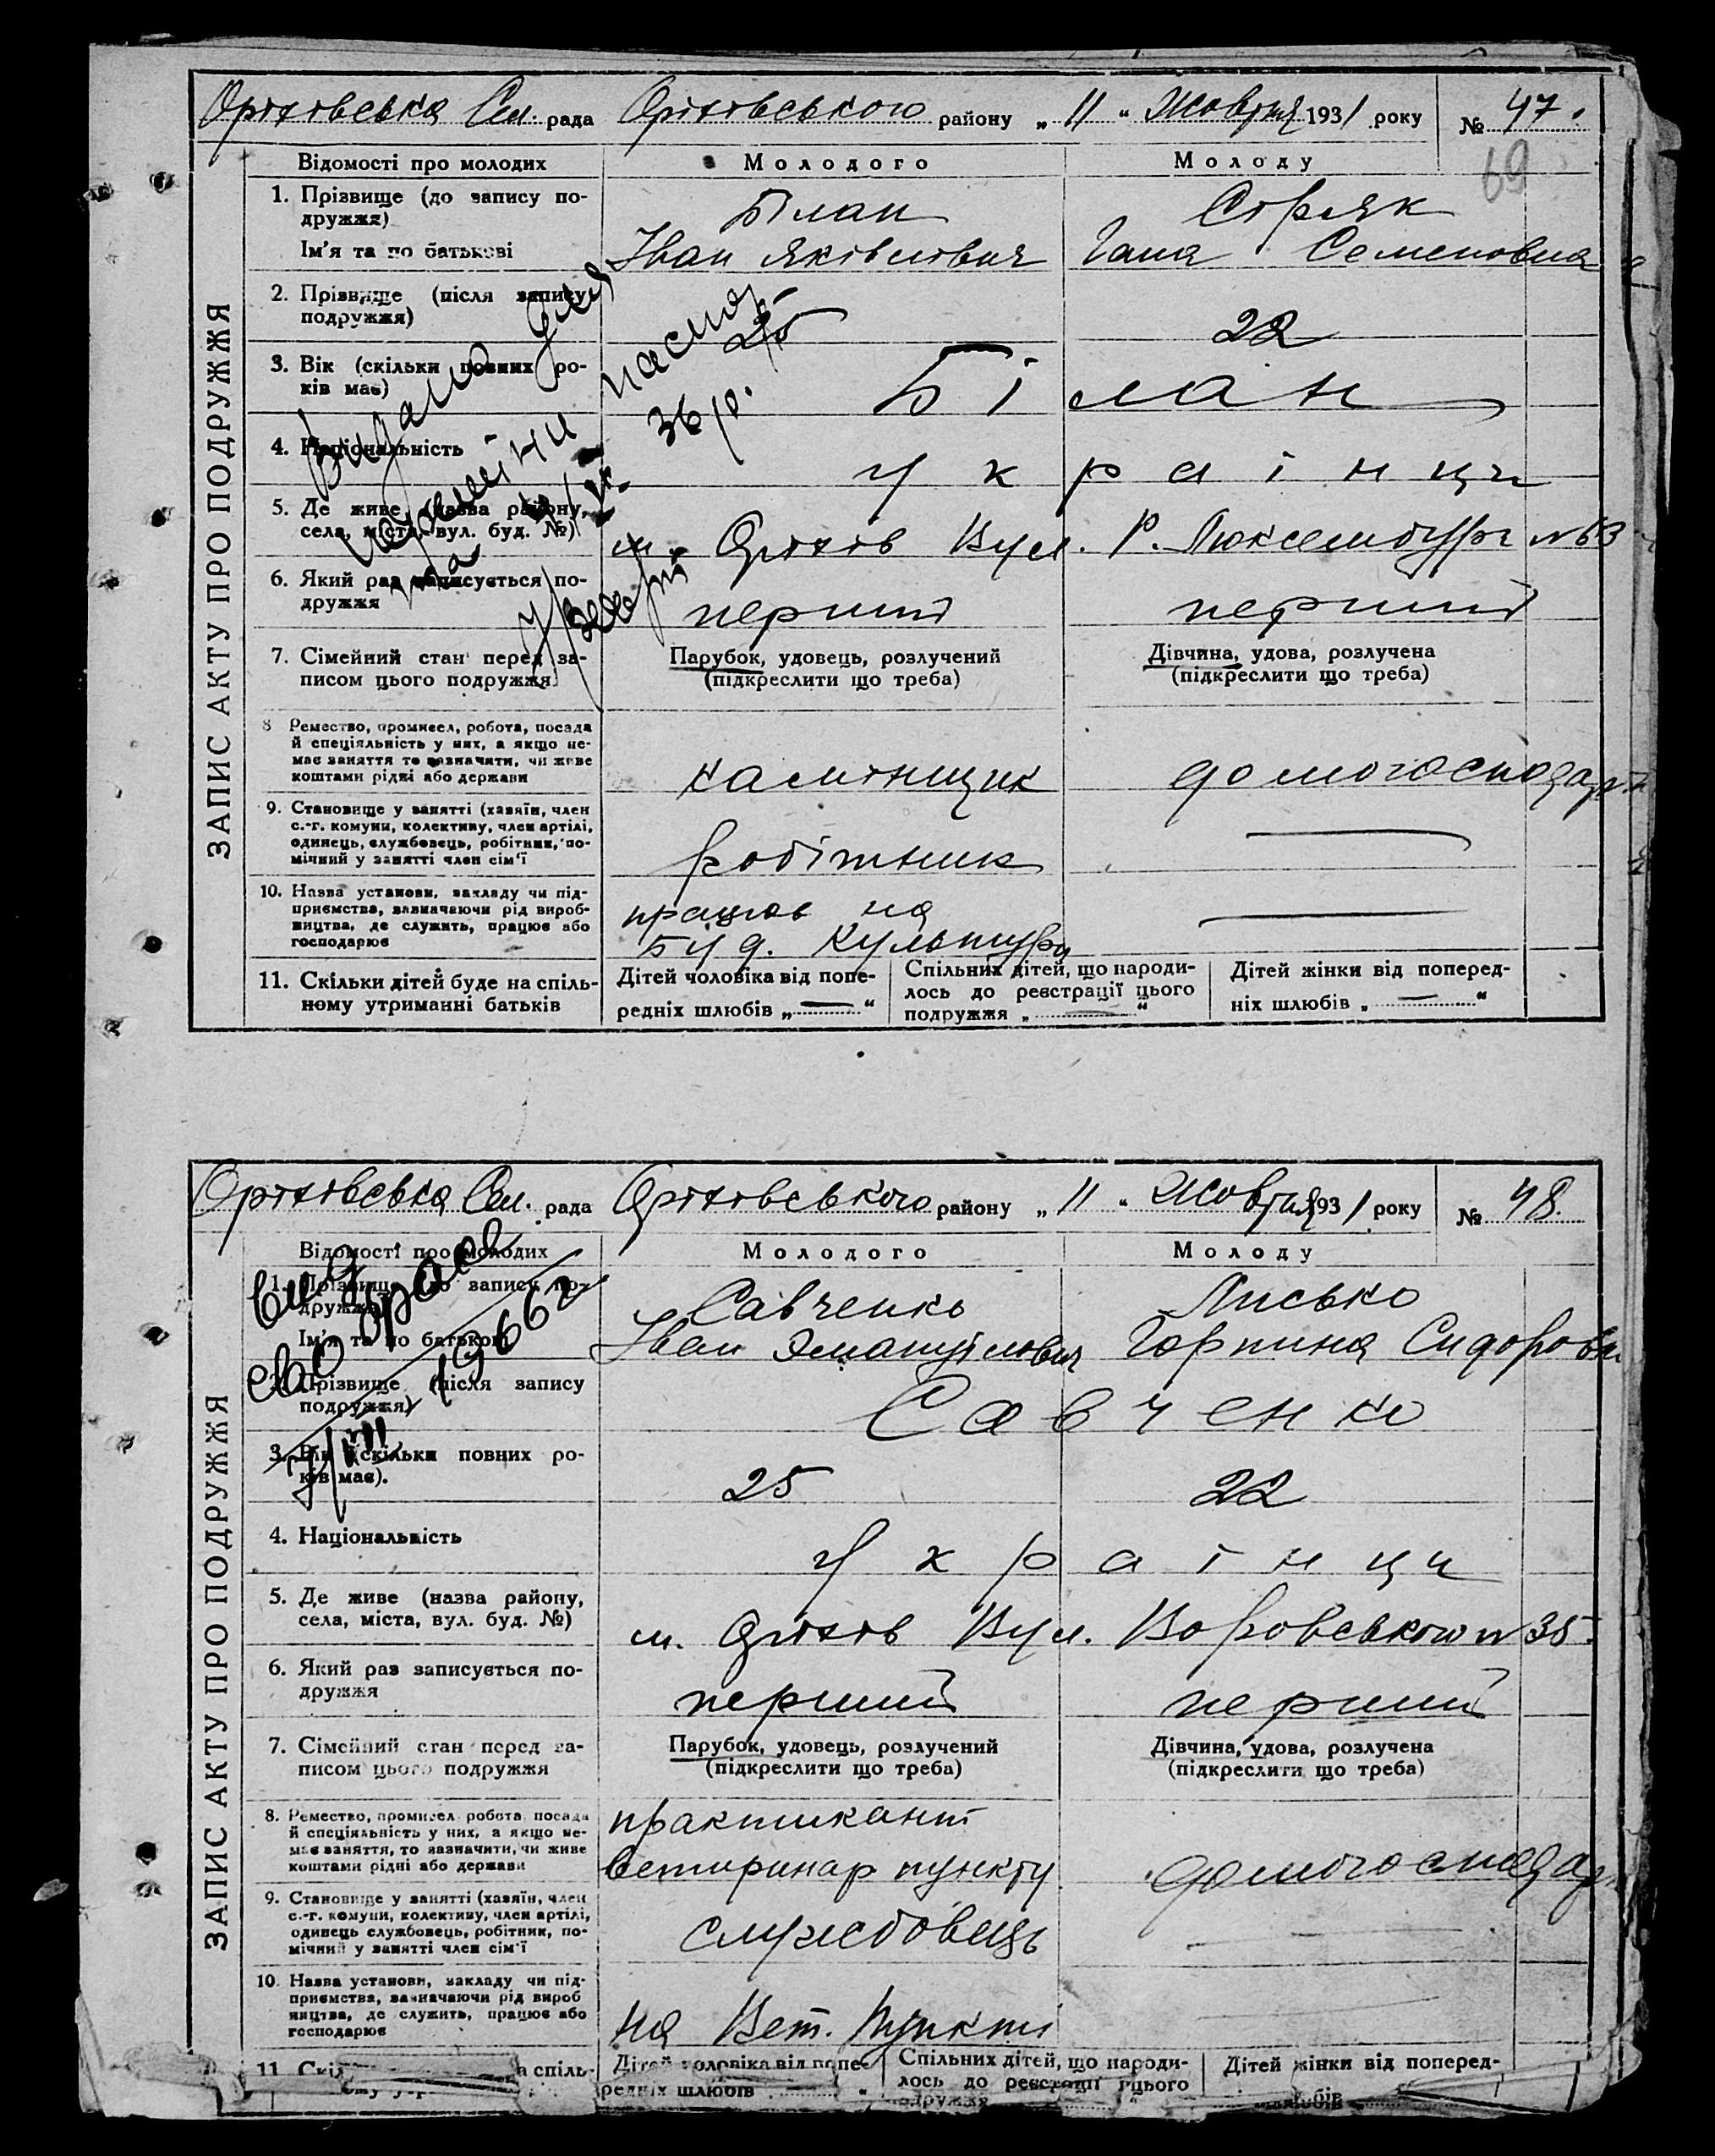 Оріхівська Сел. рада Оріхівського району „ 11 “ Жовтня 1931 року № 47.
69
ЗАПИС АКТУ ПРО ПОДРУЖЖЯ
Відомості про молодих Молодого Молоду
1. Прізвище (до запису по-
дружжя)
Білан Стрляк
Ім'я та по батькові Іван Яківлович Гана Семеновна
2. Прізвище (після запису
подружжя)
25 22
3. Вік (скільки повних ро-
ків має)
Білан
4. Національність
українци
5. Де живе (назва району,
села, міста, вул. буд. №)
м. Оріхів Вул. Р. Люксембург №63
6. Який раз записується по-
дружжя
перший перший
7. Сімейний стан перед за-
писом цього подружжя
Парубок, удовець, розлучений
(підкреслити що треба)
Дівчина, удова, розлучена
(підкреслити що треба)
8 Ремество, промисел, робота, посада
й спеціяльність у них, а якщо не-
має заняття то зазначити, чи живе
коштами рідні або держави
камінщик домогосподар
9. Становище у занятті (хазяїн, член
с.-г. комуни, колективу, член артілі,
одинець, службовець, робітник, по-
мічний у занятті член сім'ї
робітник
10. Назва установи, закладу чи під-
приємства, зазначаючи рід вироб-
ництва, де служить, працює або
господарює
працює на
Буд. Культури
11. Скільки дітей буде на спіль-
ному утриманні батьків
Дітей чоловіка від попе-
редніх шлюбів „ — “
Спільних дітей, що народи-
лось до реєстрації цього
подружжя „ — “
Дітей жінки від поперед-
ніх шлюбів „ — “
Видано для
переміни паспор.
на 36 р.
Оріхівська Сел. рада Оріхівського району „ 11 “ Жовтня 1931 року № 48.
ЗАПИС АКТУ ПРО ПОДРУЖЖЯ
Відомості про молодих Молодого Молоду
1. Прізвище (до запису по-
дружжя)
Савченко Лисько
Ім'я та по батькові Іван Эмануілович Горпина Сидоровн
2. Прізвище (після запису
подружжя)
Савченко
3. Вік (скільки повних ро-
ків має).
25 22
4. Національність
українци
5. Де живе (назва району,
села, міста, вул. буд. №)
м. Оріхів Вул. Воровського № 35.
6. Який раз записується по-
дружжя
перший перший
7. Сімейний стан перед за-
писом цього подружжя
Парубок, удовець, розлучений
(підкреслити що треба)
Дівчина, удова, розлучена
(підкреслити що треба)
8. Ремество, промисел робота посада
й спеціяльність у них, а якщо не-
має заняття, то зазначити, чи живе
коштами рідні або держави
практикант
ветиринар пункту
домогосподар
9. Становище у занятті (хазяїн, член
с.-г. комуни, колективу, член артілі,
одинець службовець, робітник, по-
мічний у занятті член сім'ї
службовець
10. Назва установи, закладу чи під-
приємства, зазначаючи рід вироб
ництва, де служить, працює або
господарює
на Вет. Пункті
11. Скіл а спіль-
Дітей чоловіка від попе-
редніх шлюбів „
Спільних дітей, що народи-
лось до реєстрації цього
подружжя
Дітей жінки від поперед-
шлюбів
1966 г